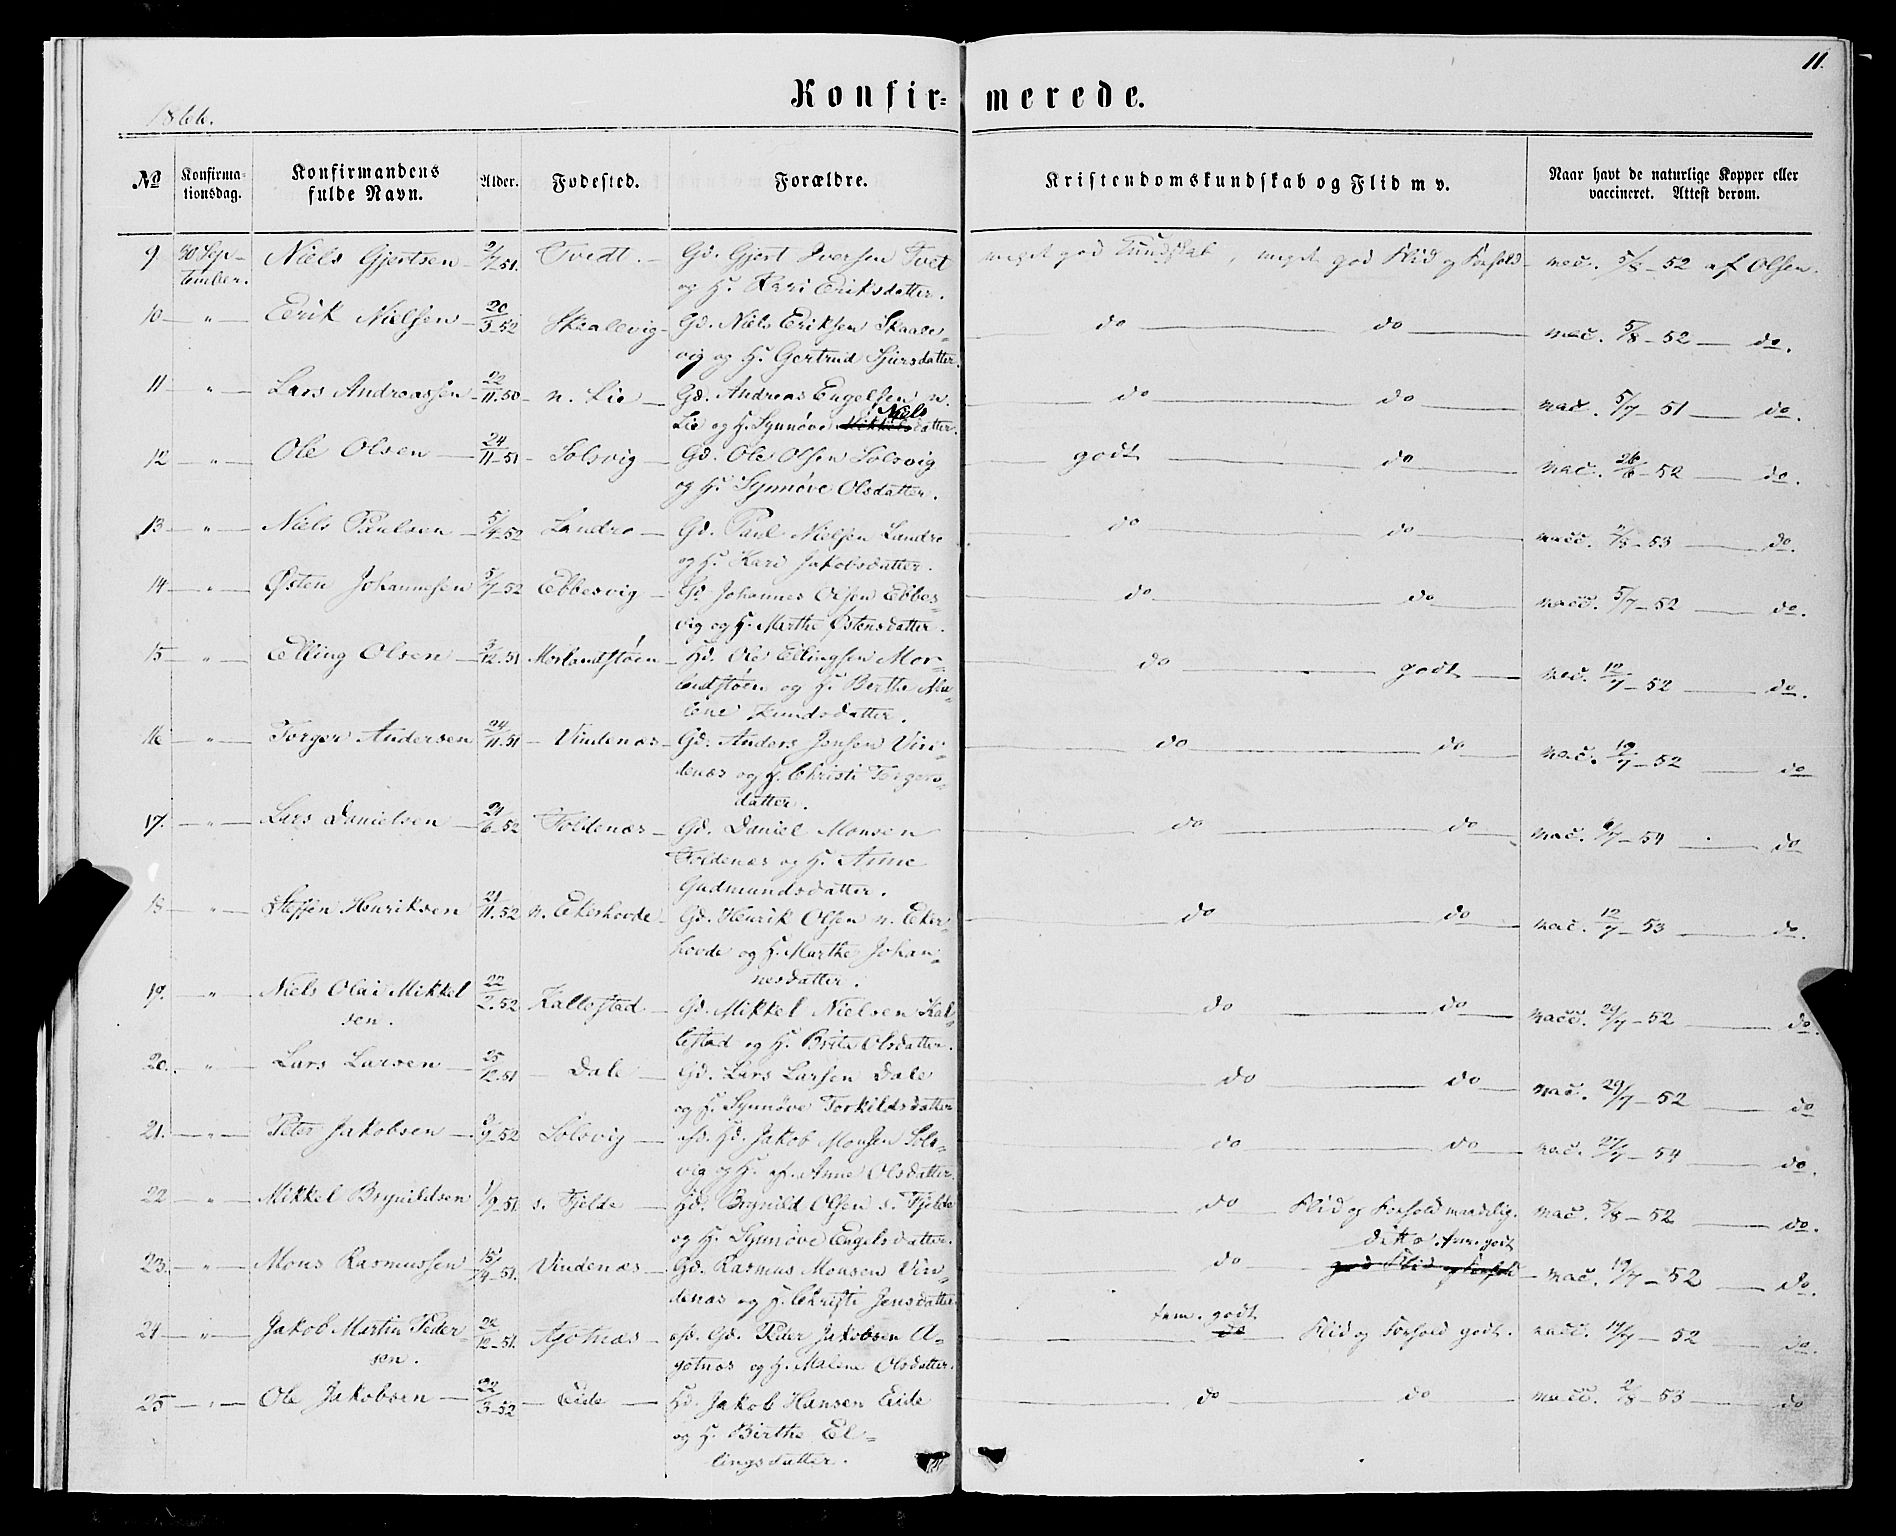 11.
Konfir= merede.
1866.
No Konfirma-tionsdag. Konfirmandens fulde Navn. Alder. Fodested. Forældre. Kristendomskundskab og Flid m v. Naar havt de naturlige Kopper eller vaccineret. Attest derom.
9 30 Sep- Niels Gjertsen 2/7-51. Tvedt. Gd. Gjert Iversen Tvet meget god Kundskab, meget god Flid og Forhold vac. 5/8-52 af Olsen.
tember. og H. Kari Eriksdatter.
10 " Erik Nielsen 20/3-52 Skaalevig Gd. Niels Eriksen Skaale- do do vac. 5/8-52 do.
vig og H. Gertrud Sjursdatter.
11 " Lars Andreassen 22/11.50 n. Lie Gd. Andreas Engelsen n. do do vac. 5/7 51 do.
Niels
Lie og H. Synnøve Mikkelsdatter.
12 " Ole Olsen 24/11-51 Solsvig Gd. Ole Olsen Solsvig godt do vac. 26/8-52 do.
og H. Synnøve Olsdatter.
13 " Niels Paulsen 5/4-52 Landro Gd. Paul Nielsen Landro do do vacc. 2/8-53 do.
og H. Kari Jakobsdatter.
14 " Østen Johannesen 5/7-52 Ebbesvig Gd Johannes Olsen Ebbes- do do vacc. 5/7-52 do.
vig og H. Marthe Østensdatter.
15 " Elling Olsen 3/12.51 Morlandstøen Hd. Ole Ellingsen Mor- do godt vac. 12/7-52 do.
landstøen og H. Berthe Ma-
lene Knudsdatter.
16 " Torger Andersen 24/11.51 Vindenæs Gd. Anders Jensen Vin- do do vac. 19/7-52 do
denæs og H. Christi Torgers-
datter.
17. " Lars Danielsen 21/6.52 Toldenæs Gd. Daniel Monsen do do vac. 6/7-54 do
Toldenæs og H. Anne
Gudmundsdatter.
18 " Steffen Henriksen 21/11.52 n. Ekerhovde Gd. Henrik Olsen n. Eker- do do vac. 12/7-53 do.
hovde og H. Marthe Johan-
nesdatter.
19. " Niels Olai Mikkel 22/2.52 Kallestad Gd. Mikkel Nielsen Kal- do do vacc. 29/7-52 do.
sen. lestad og H. Brite Olsdatter.
20. " Lars Larsen 25/12.51 Dale Gd. Lars Larsen Dale do do vac. 29/7-52 do
og H. Synnøve Torkildsdatter
21. " Peter Jakobsen 3/9-52 Solsvig afd. Hd. Jakob Monsen Sols- do do vac. 27/7-54 do.
vig og H. af. Anne Olsdatter.
22 " Mikkel Brynildsen 1/9.51. s. Fjelde Hd. Brynild Olsen s. Fjelde do Flid og Forhold maadelig. vac. 5/8-52 do.
og H. Synnøve Engelsdatter.
ditto tem. godt
23. " Mons Rasmussen 15/4-51. Vindenæs Gd. Rasmus Monsen Vin- do god Flid og Forhold vac. 19/7-52 do.
denæs og H. Christi Jensdatter
tem. godt
24 " Jakob Martin Peder- 22/12-51. Agotnæs afd. Gd. Peder Jakobsen A- do Flid og Forhold godt. vacc. 19/7-52 do.
sen. gotnæs og H. Malene Olsdatter.
25 " Ole Jakobsen 22/3-52 Eide Hd. Jakob Hansen Eide do do vacc. 2/8-53 do
og H. Birthe El-
lingsdatter.